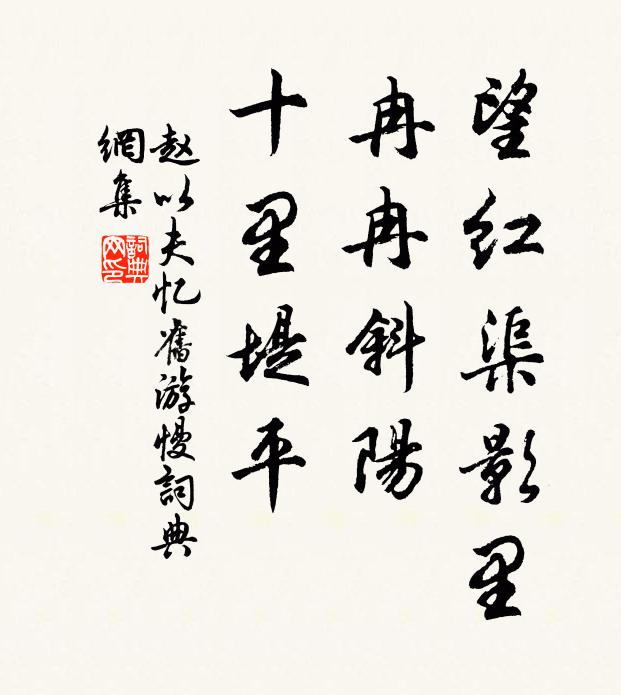 望红渠影里
冉冉斜陽
十里堤平
赵以夫忆舊游慢詞典
網集
詞典
网印